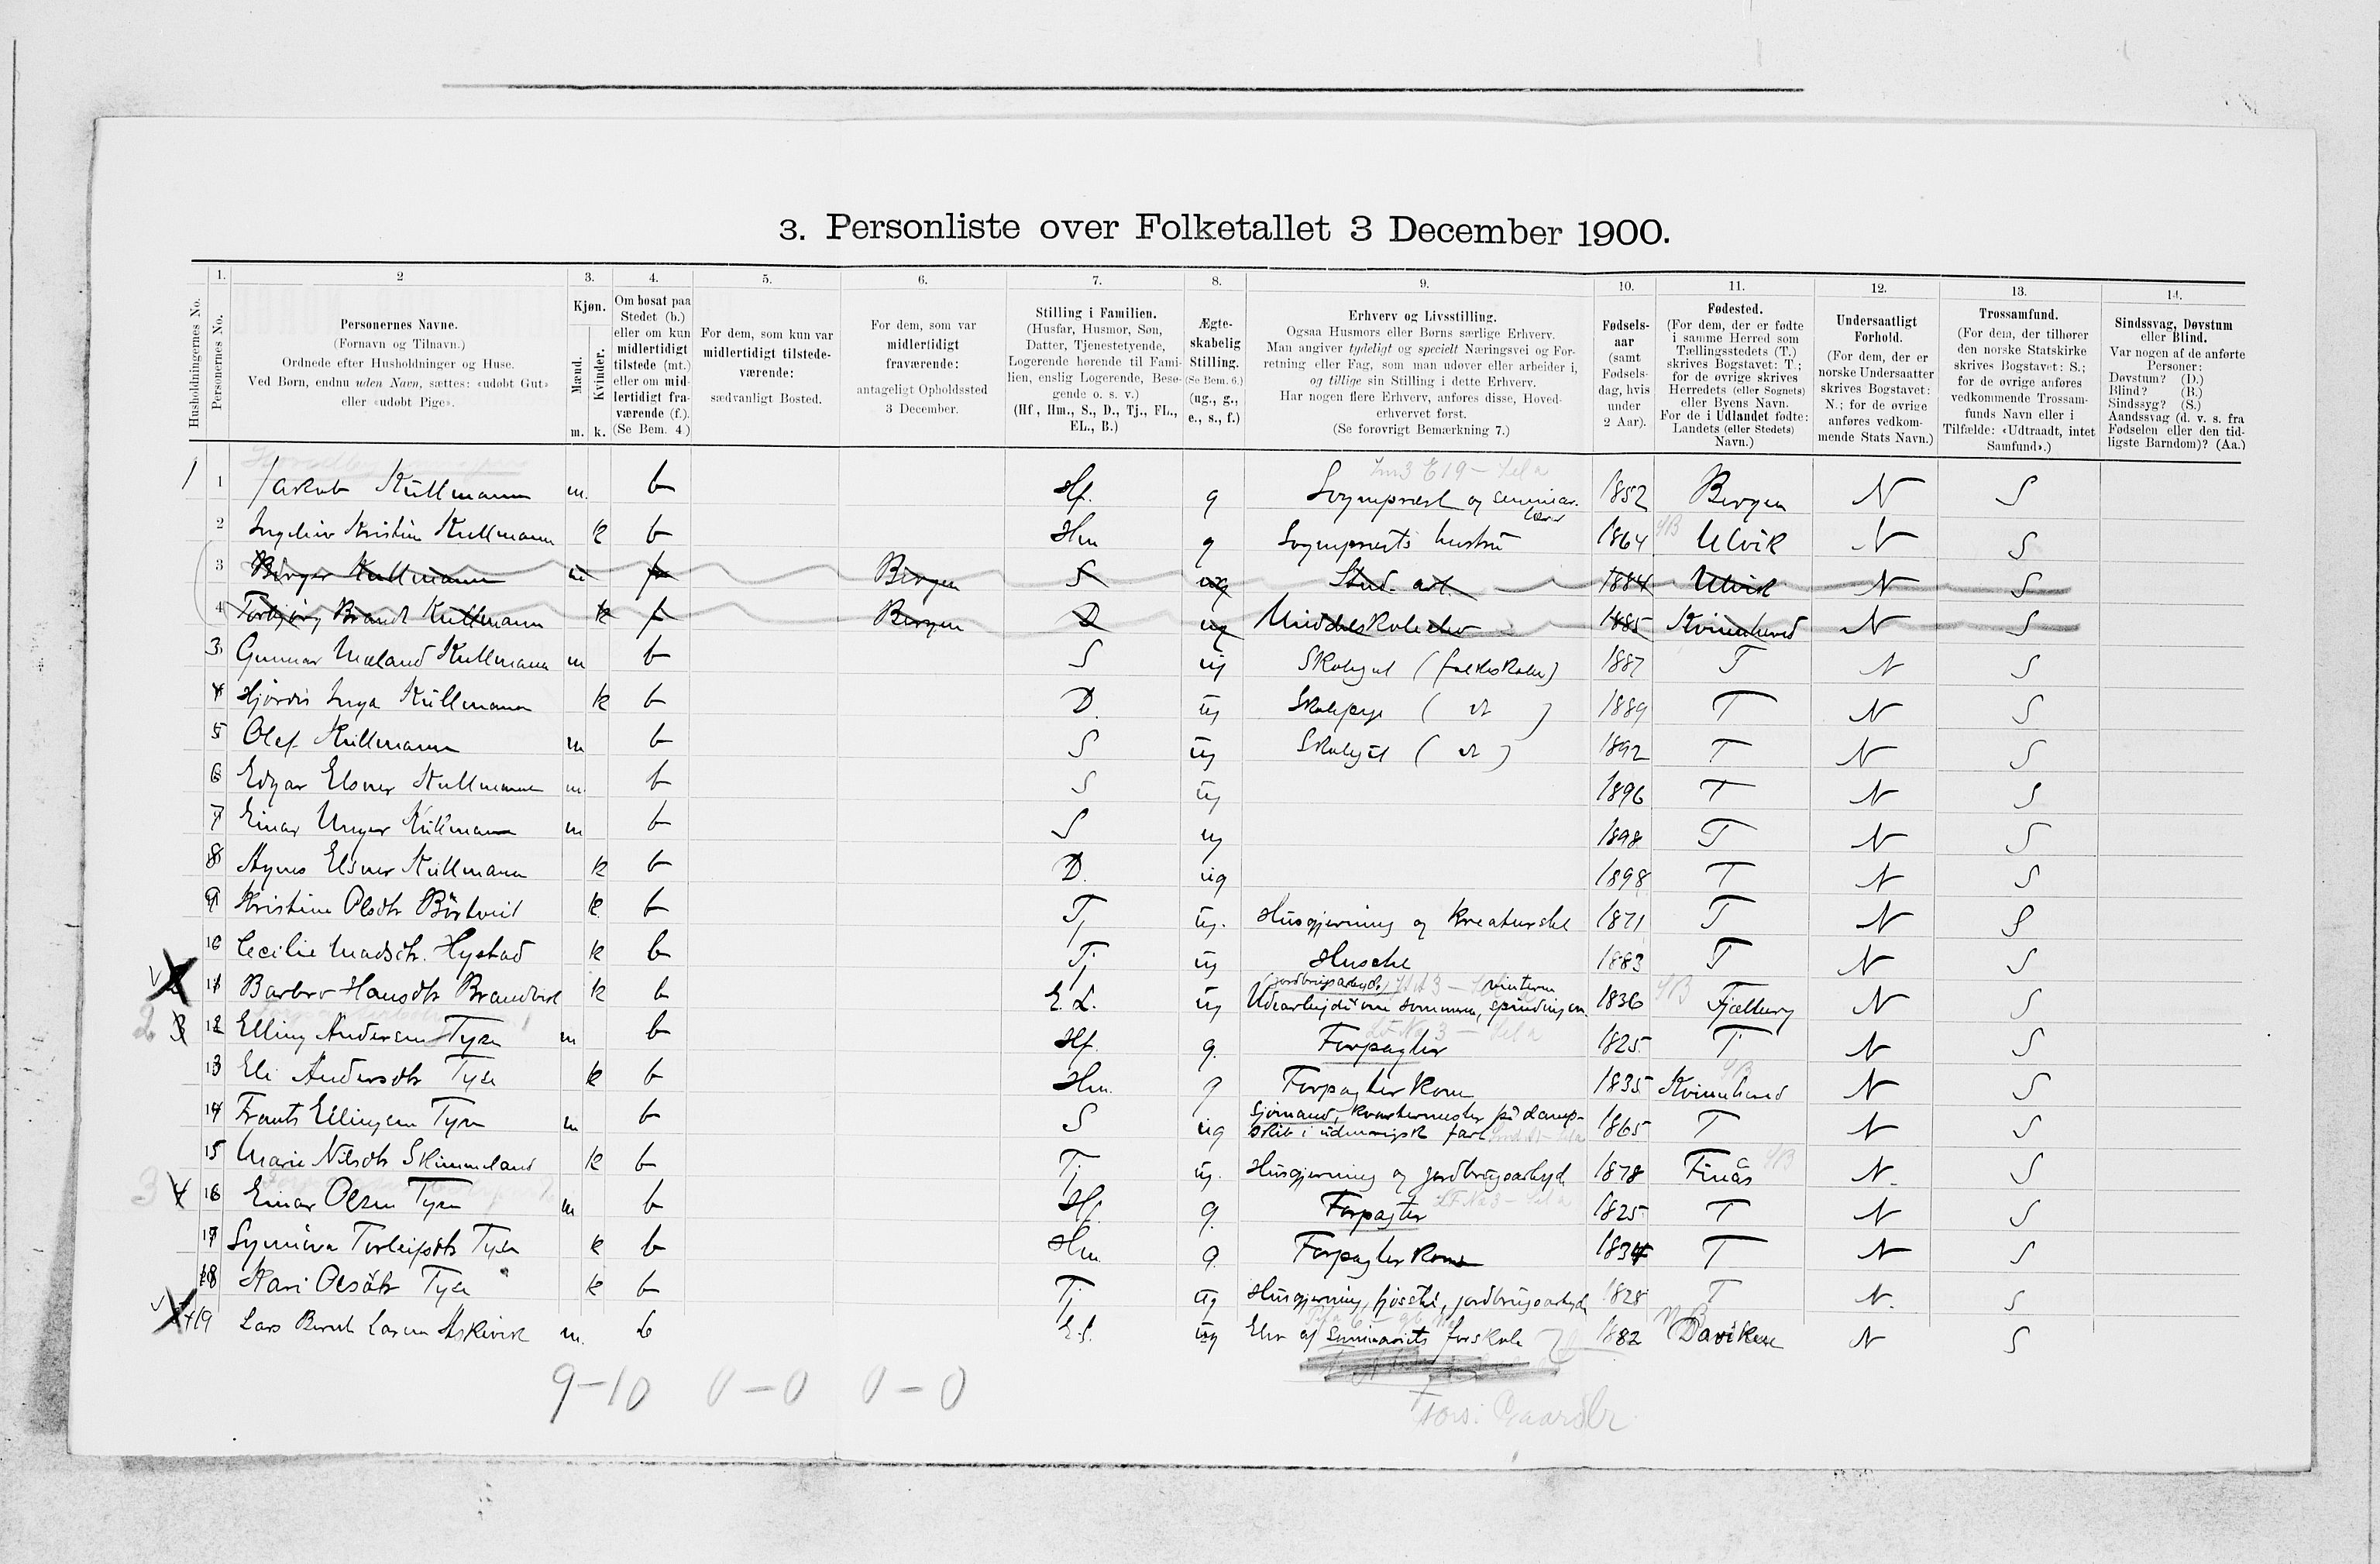 3. Personliste over Folketallet 3 December 1900.
1. 2 3. 4. 5. 6. 7. 8. 9. 10. 11. 12. 13. 14.
Husholdningernes No.
Personernes No.
Personernes Navne.
(Fornavn og Tilnavn.)
Ordnede efter Husholdninger og Huse.
Ved Børn, endnu uden Navn, sættes: «udøbt Gut»
eller «udøbt Pige».
Kjøn.
Mænd.
Kvinder.
m. k.
Om bosat paa
Stedet (b.)
eller om kun
midlertidigt
tilstede (mt.)
eller om mid-
lertidigt fra-
værende (f.).
(Se Bem. 4.)
For dem, som kun var
midlertidigt tilstede-
værende:
sædvanligt Bosted.
For dem, som var
midlertidigt
fraværende:
antageligt Opholdssted
3 December.
Stilling i Familien.
(Husfar, Husmor, Søn,
Datter, Tjenestetyende,
Logerende hørende til Fami-
lien, enslig Logerende, Besø-
gende o. s. v.)
(Hf., Hm., S., D., Tj., FL.,
EL., B.)
Ægte-
skabelig
Stilling.
(Se Bem. 6.)
(ug., g.,
e., s., f.)
Erhverv og Livsstilling.
Ogsaa Husmors eller Børns særlige Erhverv.
Man angiver tydeligt og specielt Næringsvei og For-
retning eller Fag, som man udøver eller arbeider i,
og tillige sin Stilling i dette Erhverv.
Har nogen flere Erhverv, anføres disse, Hoved-
erhvervet først.
(Se forøvrigt Bemærkning 7.)
Fødsels-
aar
(samt
Fødsels-
dag, hvis
under
2 Aar).
Fødested.
(For dem, der er fødte
i samme Herred som
Tællingsstedets (T.)
skrives Bogstavet: T.;
for de øvrige skrives
Herredets (eller Sognets)
eller Byens Navn.
For de i Udlandet fødte:
Landets (eller Stedets)
Navn.)
Undersaatligt
Forhold.
(For dem, der er
norske Undersaatter
skrives Bogstavet:
N.; for de øvrige
anføres vedkom-
mende Stats Navn.)
Trossamfund.
(For dem, der tilhører
den norske Statskirke
skrives Bogstavet: S.;
for de øvrige anføres
vedkommende Trossam-
funds Navn eller i
Tilfælde: «Udtraadt, intet
Samfund».)
Sindssvag, Døvstum
eller Blind.
Var nogen af de anførte
Personer:
Døvstum? (D.)
Blind? (B.)
Sindssyg? (S.)
Aandssvag (d. v. s. fra
Fødselen eller den tid-
ligste Barndom)? (Aa.)
1 1 Jakob Kullmann m. b Hf. g Sogneprest og seminar- 1852 Bergen N S
lærer
2 Kristine Kullmann k b Hm g Sogneprests hustru 1864 Ulvik N S
3 Birger Kullmann m f Bergen S ug Stud. art. 1884 Ulvik N S
4 Torbjørg Brandt Kullmann k f Bergen D ug Middelskoleelev 1885 Kvinnherred N S
3 Gunnar Mæland Kullmann m b S ug Skolegut (folkeskolen) 1887 T N S
4 Hjørdis Inga Kullmann k b D. ug Skolepige ( dt ) 1889 T N S
5 Olaf Kullmann m b S ug Skolegut ( dt ) 1892 T N S
6 Edgar Elsner Kullmann m b S ug 1896 T N S
7 Einar Unger Kullmann m b S ug 1898 T N S
8 Agnes Elsner Kullmann k b D. ug 1898 T N S
9 Kristine Olsdtr k b Tj ug. Husgjerning og kreaturstel 1871 T N S
10 Cecilie Madsdtr. Hystad k b Tj ug Husstel 1883 T N S
11 Barbro Hansdtr Brandvik k b E.L. ug (jordbrugsarbeide) vinteren 1836 Fjelberg N S
Udearbejde om sommeren, spinding om
2 12 Elling Andersen Tyse m b Hf. g. Forpagter 1825 T N S
13 Eli Andersdtr Tyse k b Hm. g Forpagterkone 1835 Kvinnherred N S
14 Frants Ellingsen Tyse m b S ug Sjømand, kvartermester på damp- 1865 T N S
skib i udenrigsk fart
15 Marie Nilsdtr Skimmeland k b Tj ug. Husgjerning og jordbrugsarbejde 1878 Finås N. S
3 16 Einar Olsen Tyse m b Hf. g. Forpagter 1825 T N S
17 Synnøva Torleifsdtr Tyse k b Hm g. Forpagterkone 1834 T N S
18 Kari Olsdtr Tyse k b Tj ug Husgjerning, fjøsstel, jordbrugsarbejde 1828 T N. S
19 Lars Bernt Larsen Askvik m. b E.L. ug Elev af Seminariets forskole 1882 Daviken N S
9-10 0-0 0-0